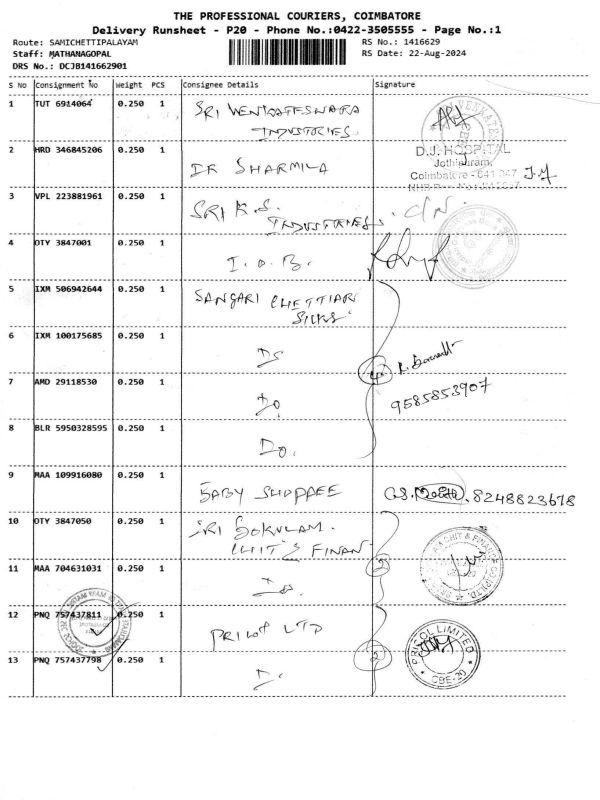 THE PROFESSIONAL COURIERS, COIMBATORE
Delivery Runsheet - P20 - Phone No.:0422-3505555 - Page No.:1
Route: SAMICHETTIPALAYAM
RS No.: 1416629
Staff: MATHANAGOPAL
RS Date: 22-Aug-2024
DRS No.: DCJB141662901
S No Consignment No Weight PCS Consignee Details Signature
1 TUT 6914064 0.250 1 SRI VENKATESWARA
INDUSTRIES.
2 HRD 346845206 0.250 1 DR SHARMILA
D.J. HOSPITAL
Jothipuram,
Coimbatore - 641 047
3 VPL 223881961 0.250 1 SRI K.S.
INDUSTRIES.
4 OTY 3847001 0.250 1 I.O.B.
5 IXM 506942644 0.250 1 SANGARI CHETTIAR
SILKS
6 IXM 100175685 0.250 1 Do
4
7 AMD 29118530 0.250 1 Do.
9585853907
8 BLR 5950328595 0.250 1 Do.
9 MAA 109916080 0.250 1 BABY SHOPPEE
8248823678
10 OTY 3847050 0.250 1 SRI GOKULAM.
CHITS FINAN
11 MAA 704631031 0.250 1 Do
2
12 PNQ 757437811 0.250 1 PRICOL LTD
13 PNQ 757437798 0.250 1 D.
2
PRICOL LIMITED
CBE-20